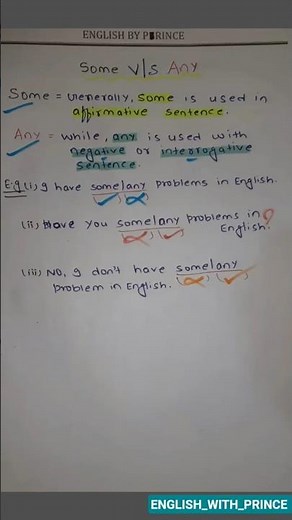 ENGLISH BY PRINCE
Some V/s Any
Some = Generally, some is used in
affirmative sentence.
Any = While, any is used with
negative or interrogative
sentence.
E.g (i) I have some/any problems in English.
(ii) Have you some/any problems in
English?
(iii) NO, I don't have some/any
problem in English.
ENGLISH_WITH_PRINCE